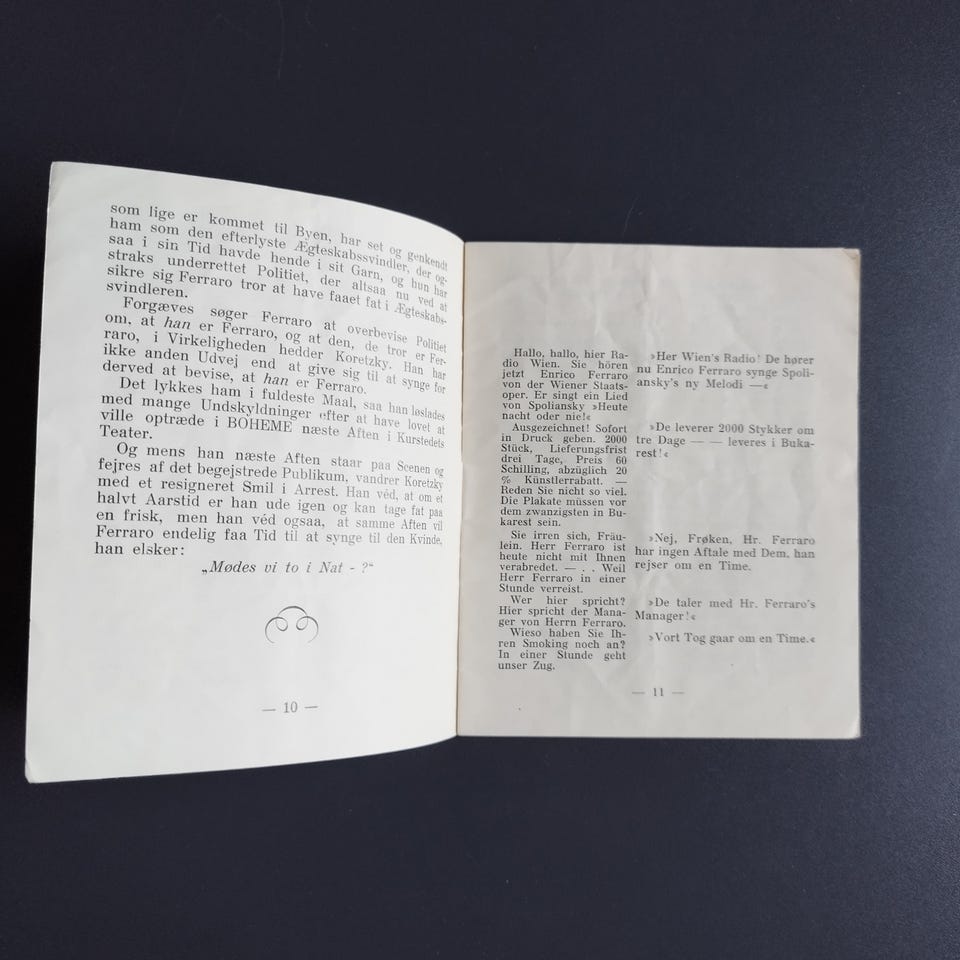 som lige er kommet til Byen, har set og genkendt
ham som den efterlyste Ægteskabssvindler, der og-
saa i sin Tid havde hende i sit Garn, og hun har
straks underrettet Politiet, der altsaa nu ved at
sikre sig Ferraro tror at have faaet fat i Ægteskabs-
svindleren.
Forgæves søger Ferraro at overbevise Politiet
om, at han er Ferraro, og at den, de tror er Fer-
raro, i Virkeligheden hedder Koretzky. Han har
ikke anden Udvej end at give sig til at synge for
derved at bevise, at han er Ferraro.
Det lykkes ham i fuldeste Maal, saa han løslades
med mange Undskyldninger efter at have lovet at
ville optræde i BOHEME næste Aften i Kurstedets
Teater.
Og mens han næste Aften staar paa Scenen og
fejres af det begejstrede Publikum, vandrer Koretzky
med et resigneret Smil i Arrest. Han véd, at om et
halvt Aarstid er han ude igen og kan tage fat paa
en frisk, men han véd ogsaa, at samme Aften vil
Ferraro endelig faa Tid til at synge til den Kvinde,
han elsker:
„Mødes vi to i Nat - ?“
— 10 —
Hallo, hallo, hier Ra-
dio Wien. Sie hören
jetzt Enrico Ferraro
von der Wiener Staats-
oper. Er singt ein Lied
von Spoliansky »Heute
nacht oder nie!«
Ausgezeichnet! Sofort
in Druck geben. 2000
Stück, Lieferungsfrist
drei Tage, Preis 60
Schilling, abzüglich 20
% Künstlerrabatt. —
Reden Sie nicht so viel.
Die Plakate müssen vor
dem zwanzigsten in Bu-
karest sein.
Sie irren sich, Fräu-
lein. Herr Ferraro ist
heute nicht mit Ihnen
verabredet. — . . Weil
Herr Ferraro in einer
Stunde verreist.
Wer hier spricht?
Hier spricht der Mana-
ger von Herrn Ferraro.
Wieso haben Sie Ih-
ren Smoking noch an?
In einer Stunde geht
unser Zug.
»Her Wien's Radio! De hører
nu Enrico Ferraro synge Spoli-
ansky's ny Melodi —«
»De leverer 2000 Stykker om
tre Dage — — leveres i Buka-
rest!«
»Nej, Frøken, Hr. Ferraro
har ingen Aftale med Dem, han
rejser om en Time.
»De taler med Hr. Ferraro's
Manager!«
»Vort Tog gaar om en Time.«
— 11 —